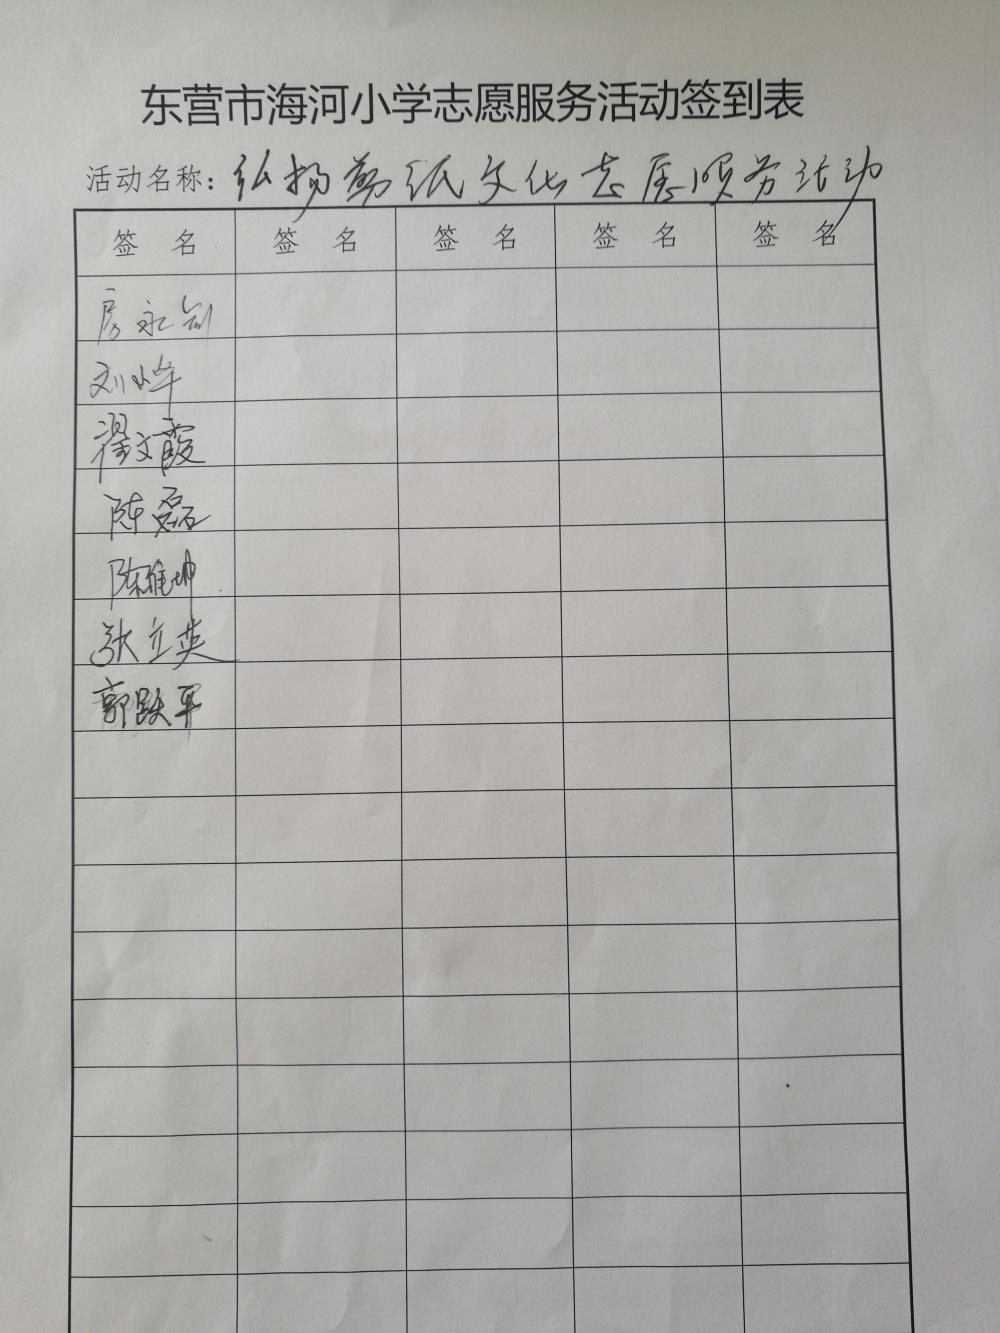 东营市海河小学志愿服务活动签到表
活动名称：弘扬剪纸文化志愿服务活动
签 名 签 名 签 名 签 名 签 名
房永剑
刘小华
翟文霞
陈磊
陈维坤
张立英
郭跃平